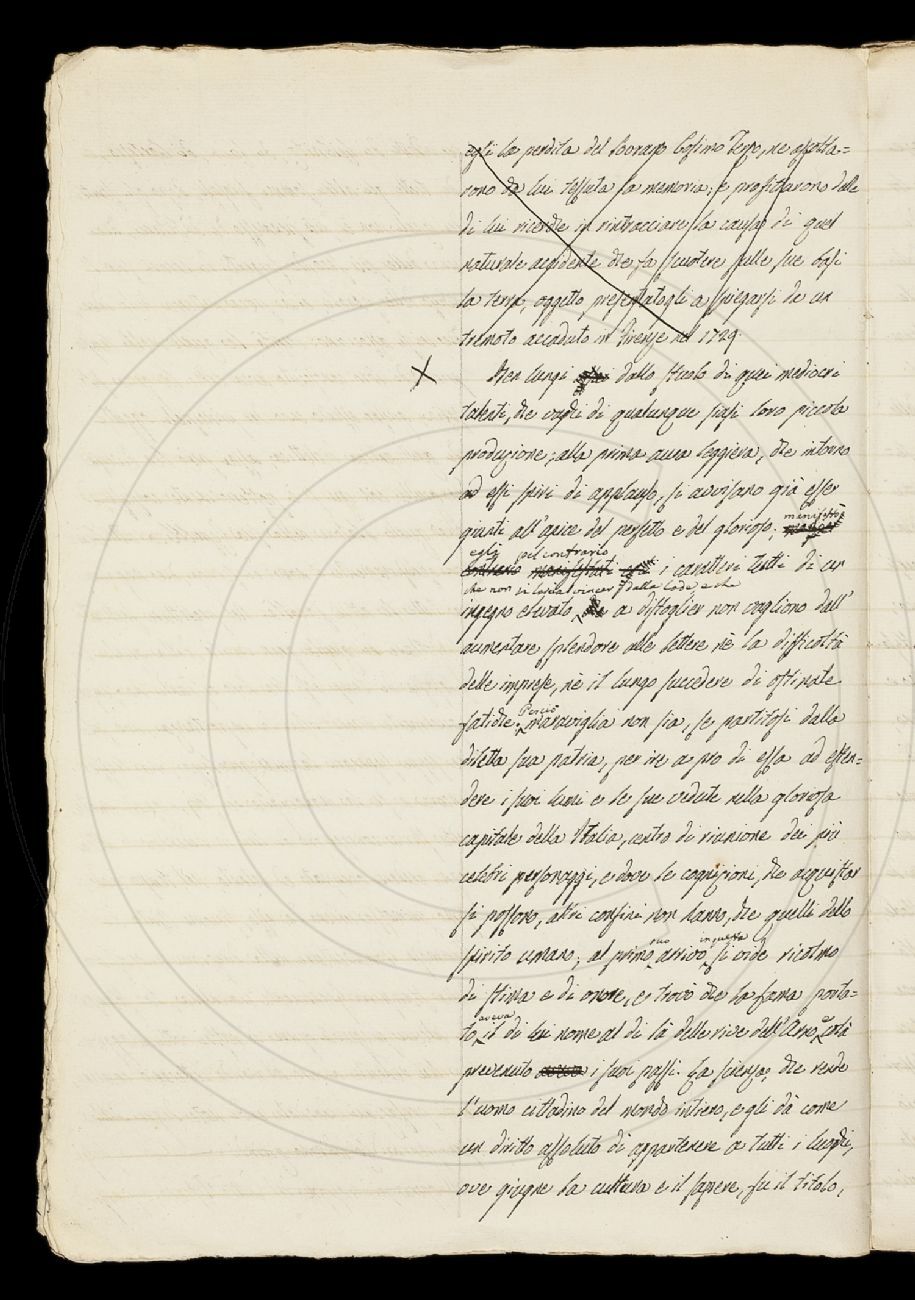 egli la perdita del Sovrano Cosimo Terzo, ne ascolta=
rono da lui tessuta la memoria; e profittarono dalle
di lui ricerche in rintracciare la causa di quel
naturale accidente che fa scuotere sulle sue basi
la terra, oggetto presentatogli a spiegarsi da un
tremoto accaduto in Firenze nel 1729.
X Ben lungi dallo stuolo di quei mediocri
talenti, che vaghi di qualunque siasi loro piccola
produzione, alla prima aura leggiera, che intorno
ad essi spiri di applauso, si avvisano già esser
giunti all'apice del perfetto e del glorioso; manifestò
egli al contrario
i caratteri tutti di un
che non si lascia vincer dalla lode, e che
ingegno elevato, a distoglier non vagliono dall'
aumentare splendore alle lettere nè la difficoltà
delle imprese, nè il lungo succedere di ostinate
fatiche. Perciò maraviglia non sia, se partitosi dalla
diletta sua patria, per ire a pro di essa ad esten=
dere i suoi lumi e le sue vedute nella gloriosa
capitale della Italia, centro di riunione dei più
celebri personaggi, e dove le cognizioni, che acquistar
si possono, altri confini non hanno, che quelli dello
spirito umano; al primo suo arrivo in questa si vide ricolmo
di stima e di onore, e trovò che la fama porta=
to aveva il di lui nome al di là delle rive dell'Arno, e colà
prevenuto i suoi passi. La scienza, che rende
l'uomo cittadino del mondo intiero, e gli dà come
un diritto assoluto di appartenere a tutti i luoghi,
ove giugne la cultura e il sapere, fu il titolo,